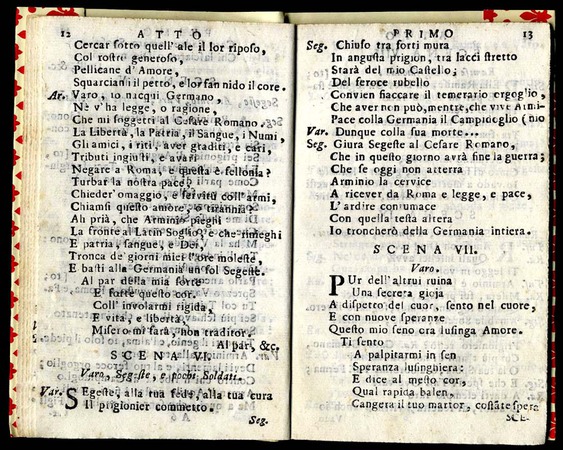 12 ATTO
Cercar sotto quell' ale il lor riposo,
Col rostro generoso,
Pellicane d' Amore,
Squarciansi il petto, e lor fan nido il core.
Ar. Varo, io nacqui Germano,
Nè v' ha legge, o ragione,
Che mi soggetti al Cesare Romano.
La Libertà, la Patria, il Sangue, i Numi,
Gli amici, i riti, aver graditi, e cari,
Tributi ingiusti, e avari
Negare a Roma, e questa è fellonia?
Turbar la nostra pace,
Chieder' omaggio, e servitù coll' armi,
Chiamsi questo amore, o tirannia?
Ah prià, che Arminio pieghi
La fronte al Latin Soglio, e che rinieghi
E patria, sangue, e Dei,
Tronca de' giorni miei l' ore moleste,
E basti alla Germania un sol Segeste.
Al par della mia sorte
E forte questo cor.
Coll' involarmi rigida,
E vita, e libertà,
Misero mi farà, non traditor.
Al par, &c.
SCENA VI.
Varo, Segeste, e pochi Soldati.
Var. SEgeste, alla tua fede, alla tua cura
Il prigionier commetto.
Seg.
PRIMO 13
Seg. Chiuso tra forti mura
In angusta prigion, tra lacci stretto
Starà del mio Castello;
Del feroce rubello
Convien fiaccare il temerario orgoglio,
Che aver non può, mentre, che vive Armi-
Pace colla Germania il Campidoglio (nio
Var. Dunque colla sua morte...
Seg. Giura Segeste al Cesare Romano,
Che in questo giorno avrà fine la guerra;
Che se oggi non atterra
Arminio la cervice
A ricever da Roma e legge, e pace,
L' ardire contumace
Con quella testa altera
Io troncherò della Germania intiera.
SCENA VII.
Varo.
PUr dell' altrui ruina
Una secreta gioja
A dispetto del cuor, sento nel cuore,
E con nuove speranze
Questo mio seno ora lusinga Amore.
Ti sento
A palpitarmi in sen
Speranza lusinghiera:
E dice al mesto cor,
Qual rapida balen,
Cangerà il tuo martor, costate spera
SCE-